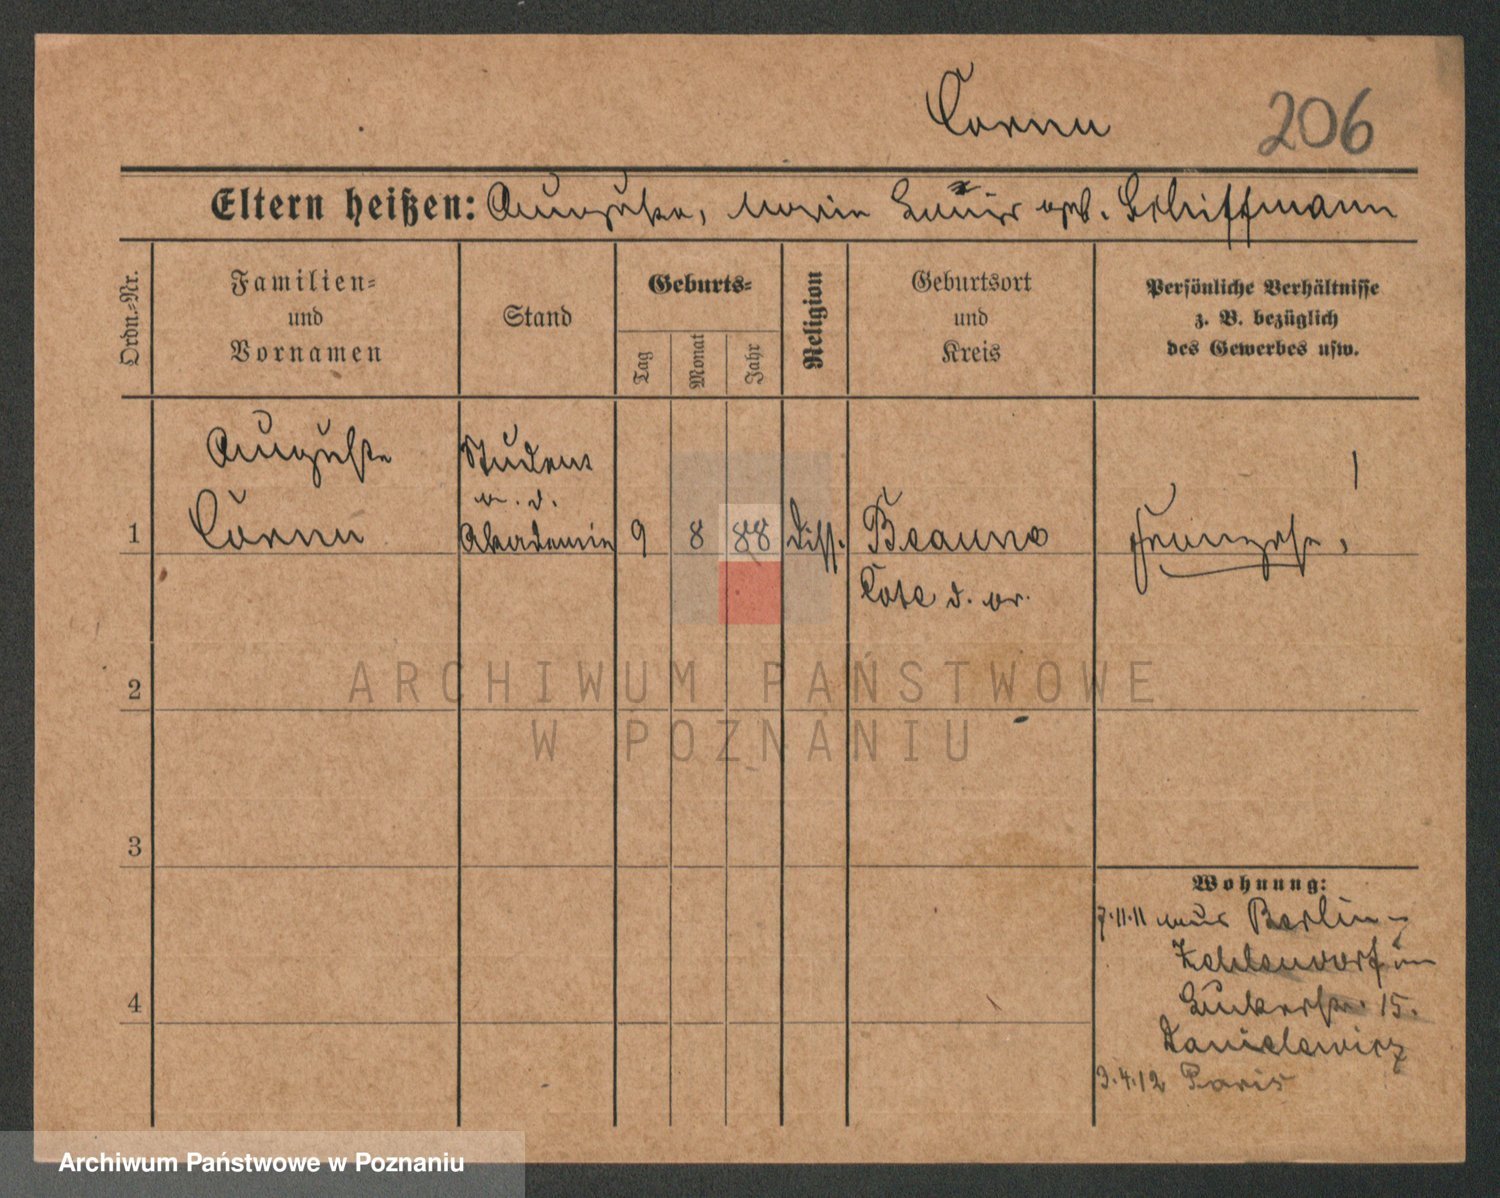 Cornu 206
Eltern heißen: Auguste, Marie Louise geb. Schiffmann
Ordn.-Nr.
Familien=
und
Vornamen
Stand
Geburts=
Tag
Monat
Jahr
Religion
Geburtsort
und
Kreis
Persönliche Verhältnisse
z. B. bezüglich
des Gewerbes usw.
1
Auguste
Cornu
Student
a. d.
Akademie
9
8
88
Diss.
Beaune
Cote d. or.
Franzose,
2
3
4
Wohnung:
7.11.11 aus Berlin-
Zehlendorf
15.
Danielewicz
3.4.12 Paris
ARCHIWUM PAŃSTWOWE
W POZNANIU
Archiwum Państwowe w Poznaniu